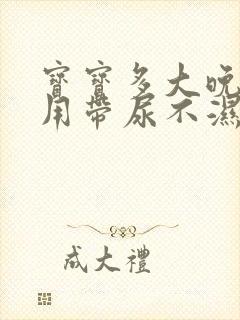 寶寶多大晚
用帶尿不濕
成大禮